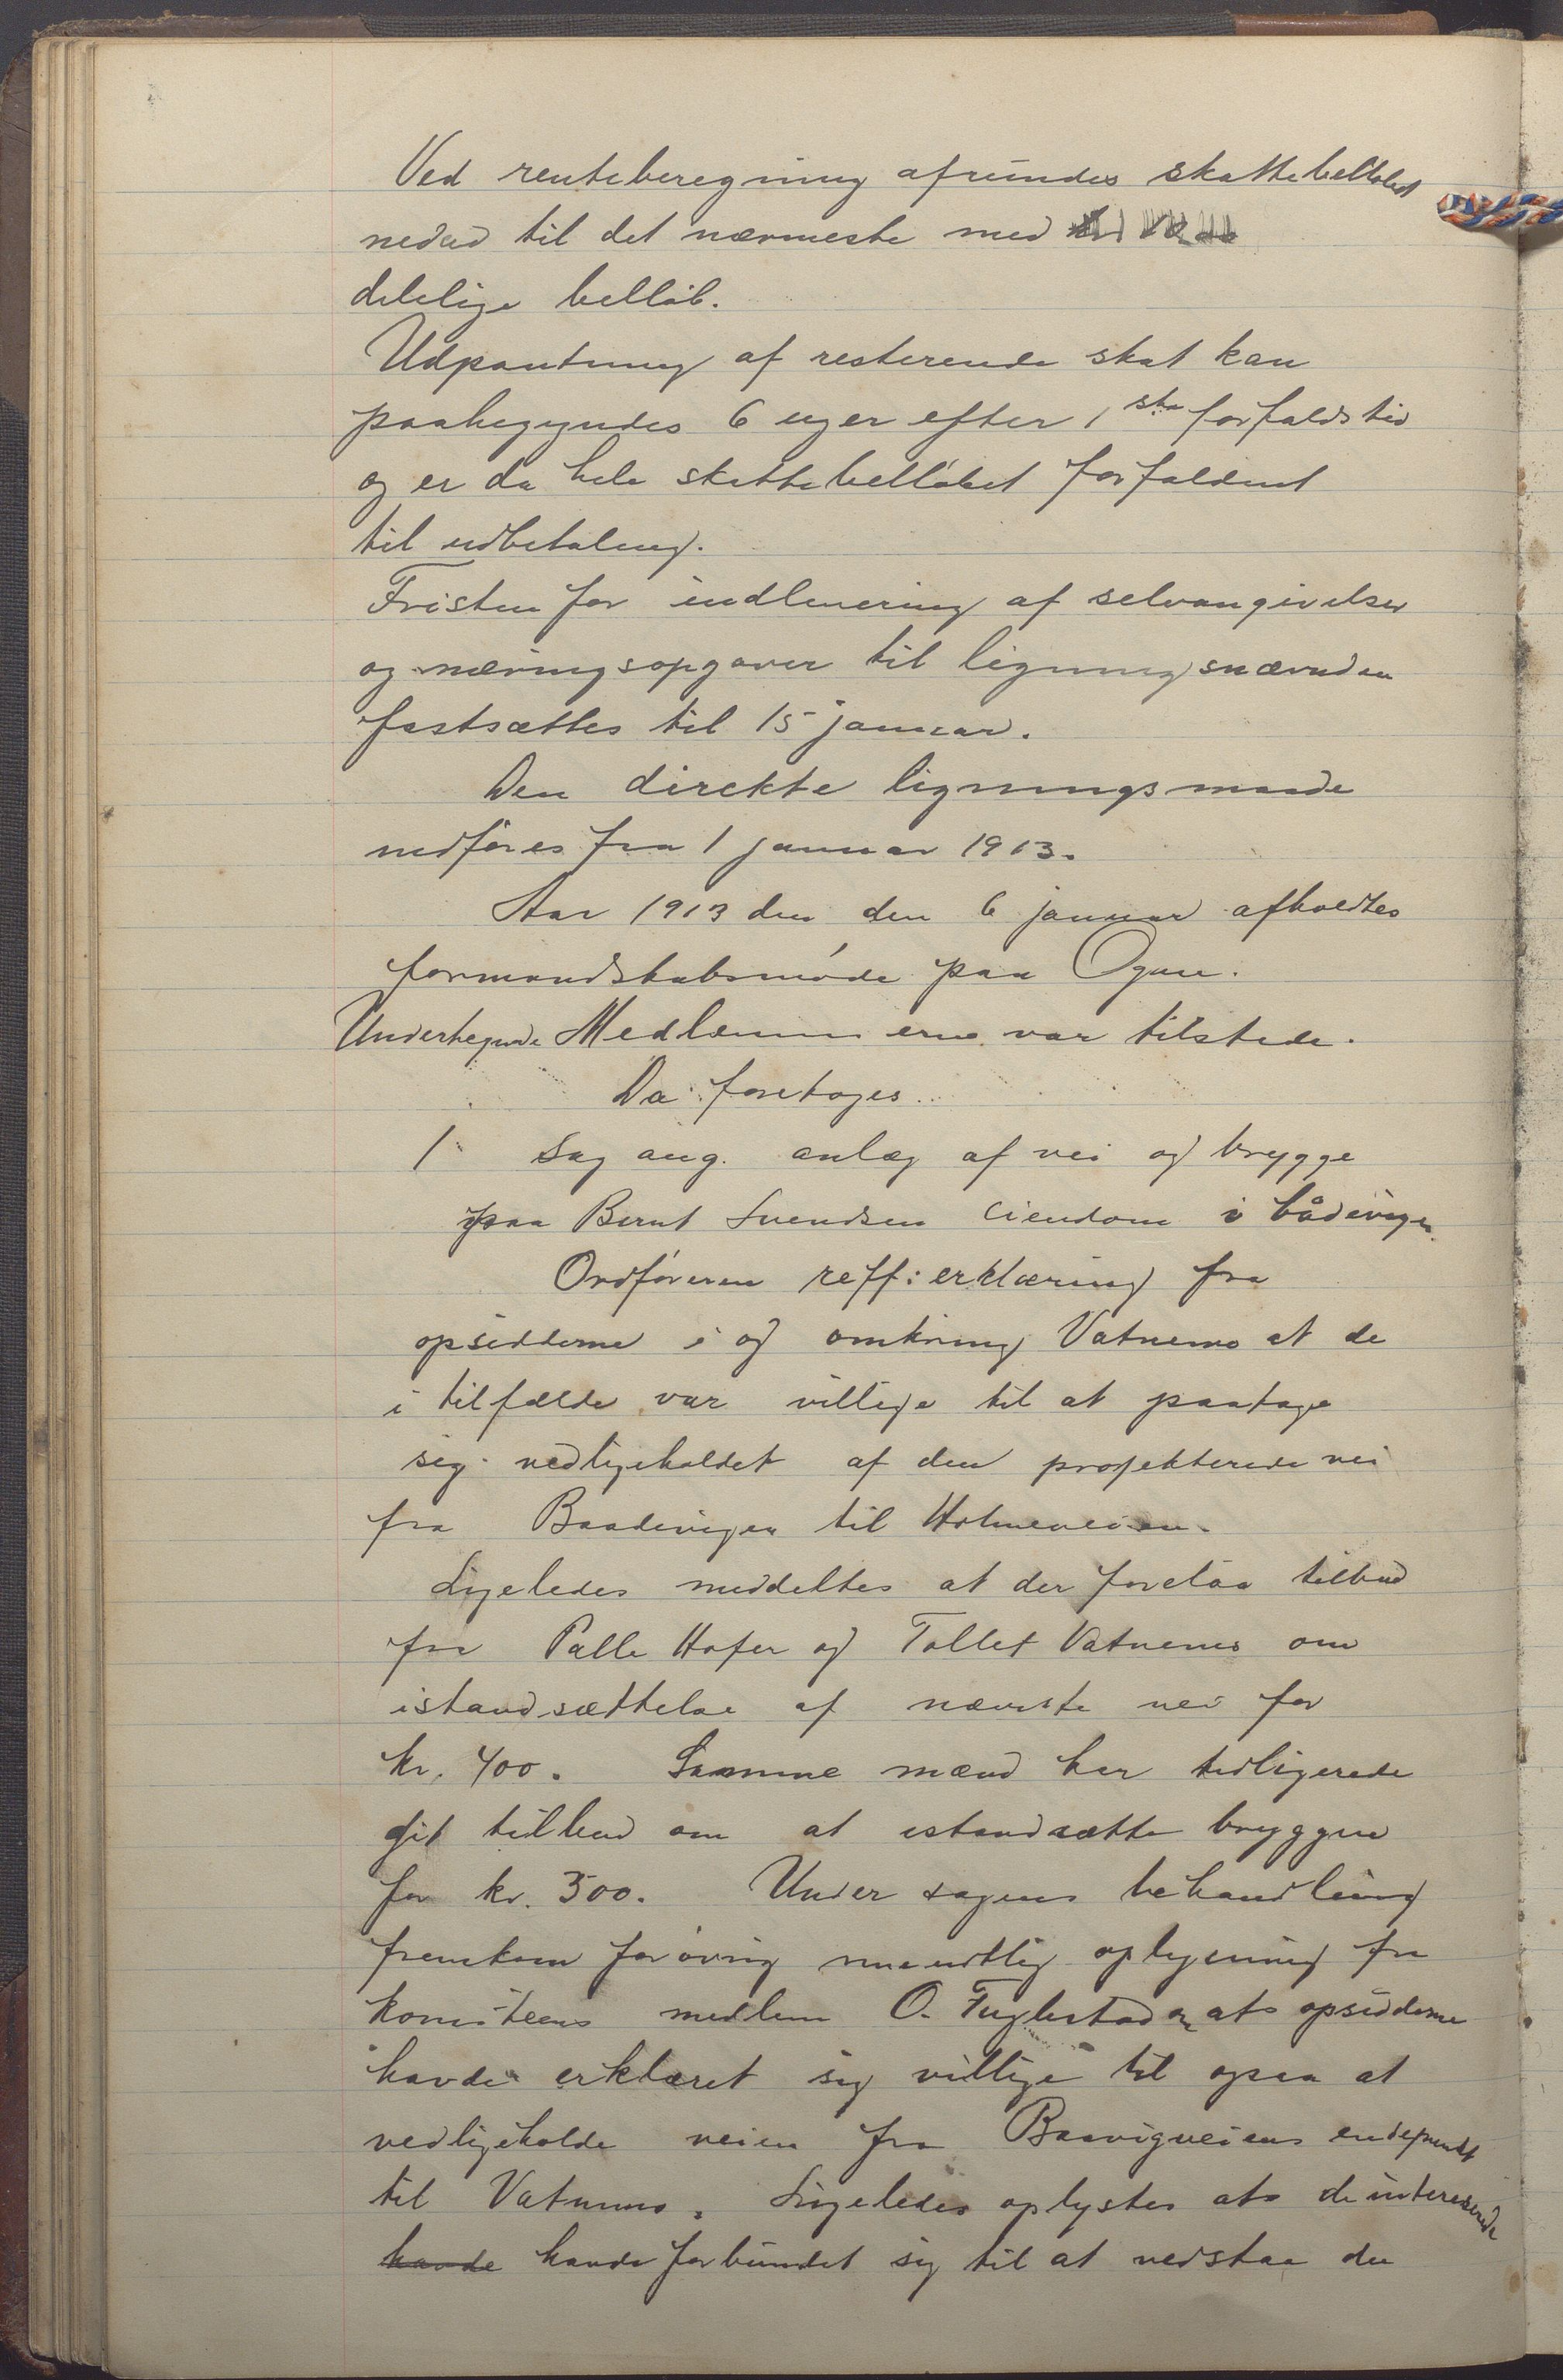 Ved renteberegning afrundes skattebelløbet
nedad til det nærmeste med
delelige belløb.
Udpantning af resterende skat kan
paabegyndes 6 uger efter 1ste forfaldstid
og er da hele skattebelløbet forfaldent
til udbetaling.
Fristen for indlevering af selvangivelser
og næringsopgaver til ligningsnævnden
fastsættes til 15 januar.
Den direkte ligningsmaade
indføres fra 1 januar 1913.
Aar 1913 den den 6 januar afholdtes
formandskabsmøde paa Ogne.
Undertegnede Medlemmerne var tilstede.
Da foretoges
1 Sag ang. anlæg af vei og brygge
paa Bernt Svendsen eiendom i bådevigen.
Ordføreren reff: erklæring fra
opsidderne i og omkring Vatnemo at de
i tilfælde var villige til at paatage
sig vedligeholdet af den projekterede vei
fra Baadevigen til Holmeveien.
Ligeledes meddeltes at der forelaa tilbud
fra Palle Hafer og Tollet Vatnemo om
istandsættelse af nævnte vei for
kr. 400. Samme mænd har tidligerede
git tilbud om at istandsætte bryggen
for kr. 300. Under sagens behandling
fremkom forøvrig mundtlig oplysning fra
komiteens medlem O. Fuglestad om at opsidderne
havde erklæret sig villige til ogsaa at
vedligeholde veien fra Baavigveiens endepunkt
til Vatnemo. Ligeledes oplystes at de interesserede
havde havde forbundet sig til at vedstaa den